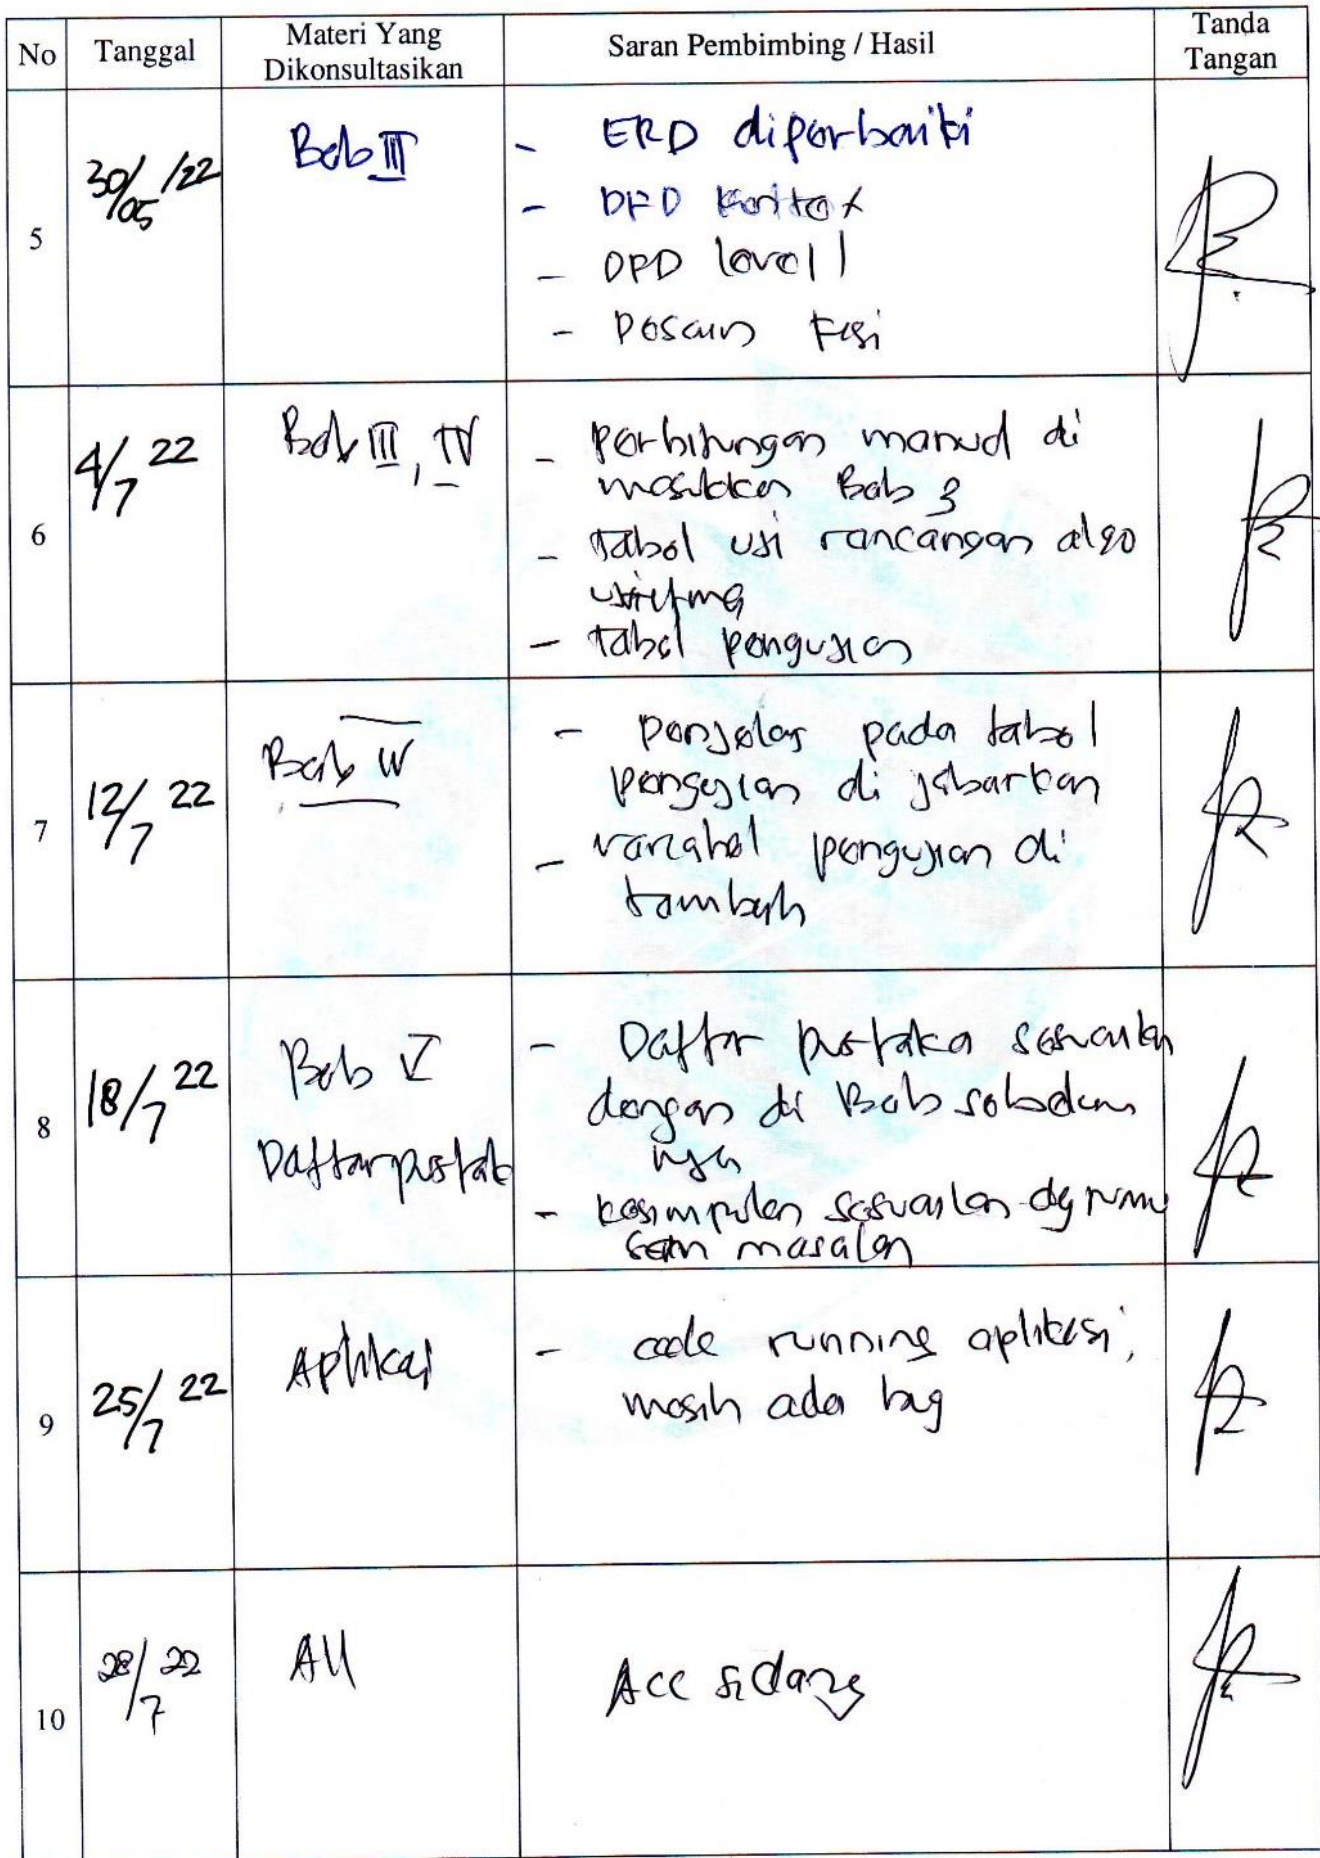 No Tanggal Materi Yang Dikonsultasikan Saran Pembimbing / Hasil Tanda Tangan
5 30/05/22 Bab III - ERD diperbaiki
- DFD Kontex
- DFD level 1
- Desain
6 4/7 22 Bab III, IV - perhitungan manual di
masukkan Bab 3
- tabel uji rancangan algo
- tabel pengujian
7 12/7 22 Bab IV - penjelas pada tabel
pengujian di jabarkan
- variabel pengujian di
tambah
8 18/7 22 Bab V - Daftar pustaka sesuaikan
Daftar pustak dengan di Bab sebelum
nya
- kesimpulan sesuaikan dg rumu
san masalah
9 25/7 22 Aplikasi - code running aplikasi,
masih ada bug
10 28/7 22 All Acc sidang